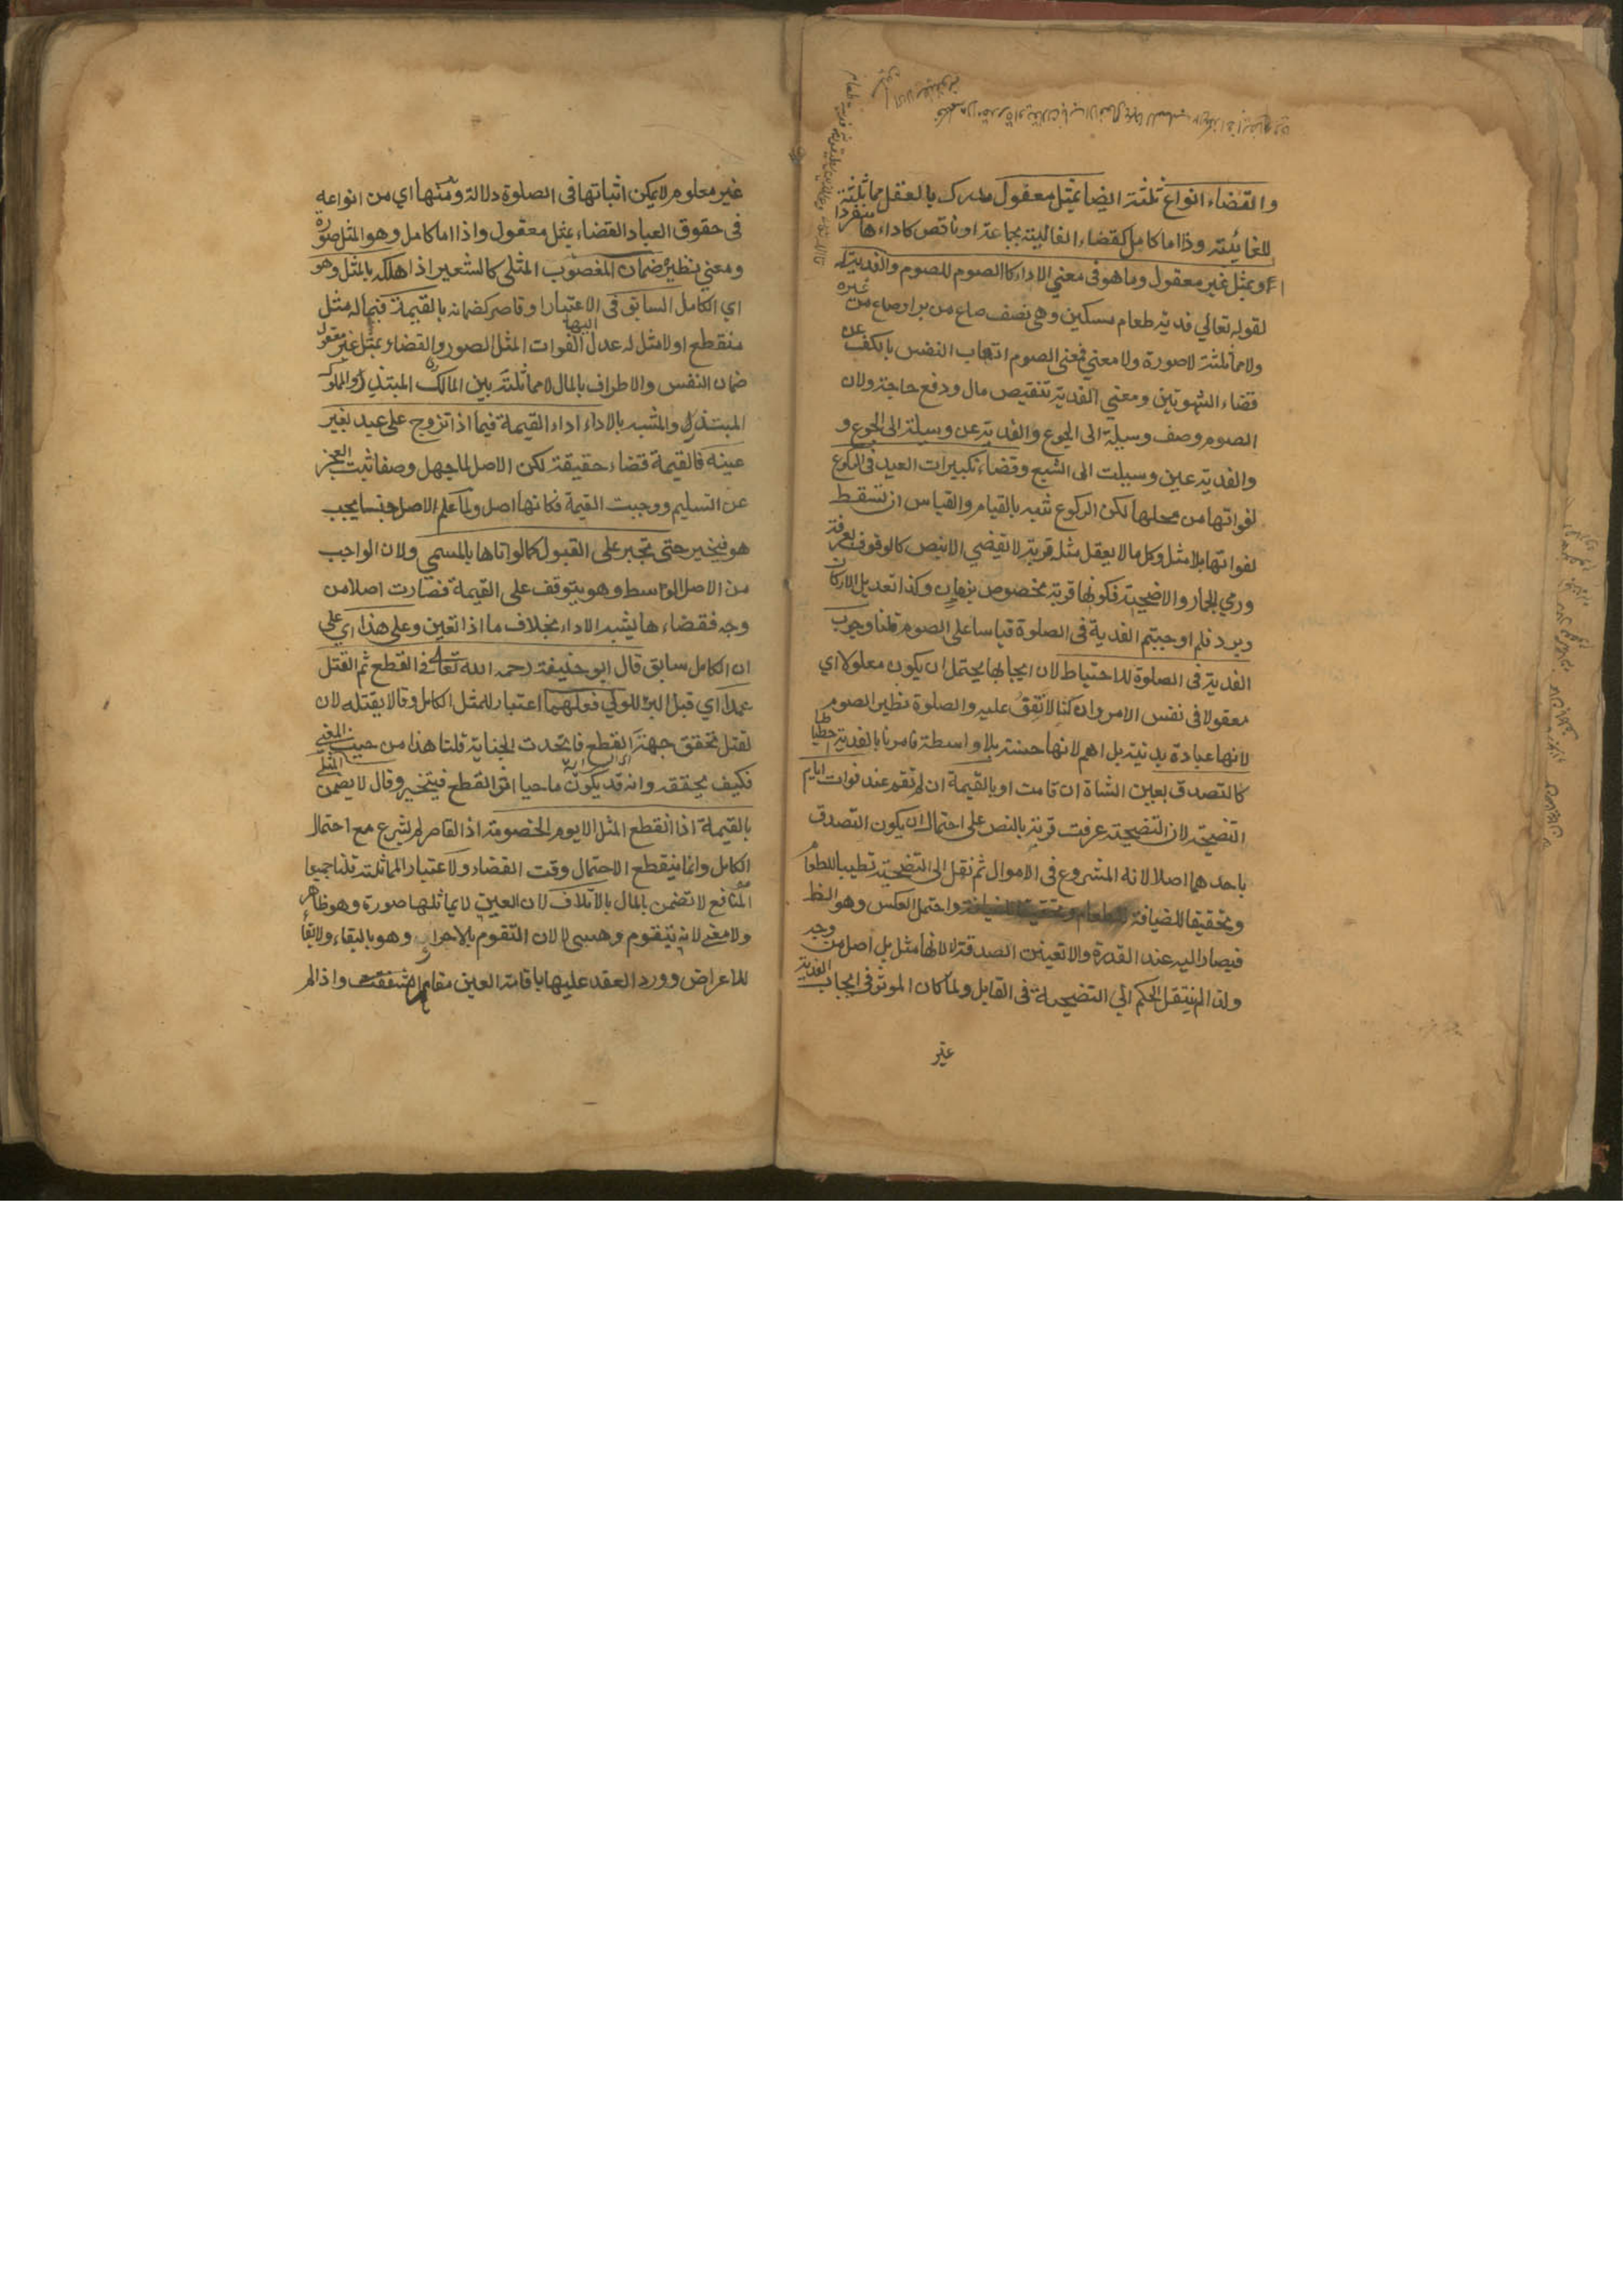 والقضاء انواع ثلثة ايضا بمثل معقول مدرك بالعقل مماثلته
للفائتة وذا اما كامل كقضاء الفائتة بجماعة او ناقص كاداءها منفردا
او بمثل غير معقول وما هو في معني الاداء كالصوم للصوم والفدية له
لقوله تعالي فدية طعام مسكين وهي نصف صاع من بر او صاع من غيره
ولا مماثلة لا صورة ولا معني فمعني الصوم اتعاب النفس بالكف عن
قضاء الشهوتين ومعني الفدية تنقيص مال ودفع حاجة ولان
الصوم وصف وسيلة الى الجوع والفدية عن وسيلة الى الجوع و
والفدية عين وسيلت الى الشبع وقضاء تكبيرات العيد في الركوع
لفواتها من محلها لكن الركوع شبه بالقيام والقياس ان تسقط
لفواتها بلا مثل وكل ما لا يعقل مثله قربة لا تقضي الا بنص كالوقوف بعرفة
ورمي الجمار والاضحية فكونها قربة مخصوص بزمان وكذا تعديل الاركان
ويرد فلم اوجبتم الفدية في الصلوة قياسا على الصوم قلنا وجوب
الفدية في الصلوة للاحتياط لان ايجابها يحتمل ان يكون معلولا اي
معقولا في نفس الامر وان كنا لا نقف عليه والصلوة نظير الصوم
لانها عبادة بدنية بل اهم لانها حسنة بلا واسطة فامرنا بالفدية احتياطا
كالتصدق بعين الشاة ان قامت او بالقيمة ان لم تقم عند فوات ايام
التضحية لان التضحية عرفت قربة بالنص على احتمال ان يكون التصدق
باحدهما اصلا لانه المشروع في الاموال ثم نقل الى التضحية تطييبا للطعام
وتحقيقا للضيافة واحتمل العكس وهو الظ
فيصار اليه عند القدرة والا تعينت الصدقة لا لانها مثل بل اصل من وجه
ولذا لم ينتقل الحكم الي التضحية في القابل ولما كان الموثر في ايجاب الفدية
غير
غير معلوم لا يمكن اثباتها في الصلوة دلالة ومنها اي من انواعه
في حقوق العباد القضاء بمثل معقول وذا اما كامل وهو المثل صورة
ومعني نظيره ضمان المغصوب المثلي كالشعير اذا هلكه بالمثل وهو
اي الكامل السابق في الاعتبار او قاصر كضمانه بالقيمة فيما له مثل
منقطع او لا مثل له عدل اليها لفوات المثل الصوري والقضاء بمثل غير معقول
ضمان النفس والاطراف بالمال لا مماثلة بين المالك المبتذل والمملوك
المبتذل والمشبه بالاداء اداء القيمة فيما اذا تزوج على عبد بغير
عينه فالقيمة قضاء حقيقة لكن الاصل لما جهل وصفا ثبت العجز
عن التسليم ووجبت القيمة فكانها اصل ولما علم الاصل جنسا يجب
هو فيخير حتى تجبر على القبول كما لو اتاها بالمسمي ولان الواجب
من الاصل الوسط وهو يتوقف على القيمة فصارت اصلا من
وجه فقضاءها يشبه الاداء بخلاف ما اذا تعين وعلى هذا اي على
ان الكامل سابق قال ابو حنيفة رحمه الله تعالى في القطع ثم القتل
عمدا اي قبل البرء للولي فعلهما اعتبارا للمثل الكامل وقالا يقتله لان
لقتل تحقق جهة القطع فاتحدت الجناية قلنا هذا من حيث المعني
فكيف يحققه وانه قد يكون ماحيا اثر القطع فيتخير وقال لا يضمن المثلي
بالقيمة اذا انقطع المثل الا يوم الخصومة اذ القاصر لم يشرع مع احتمال
الكامل وانما ينقطع الاحتمال وقت القضاء ولاعتبار المماثلة قلنا جميعا
المنافع لا تضمن بالمال بالاتلاف لان العين لا يماثلها صورة وهو ظاهر
ولا معني لانه يتقوم وهي لا لان التقوم بالاحراز وهو بالبقاء ولا بقاء
للاعراض وورد العقد عليها باقامة العين مقام المنفعة واذا لم